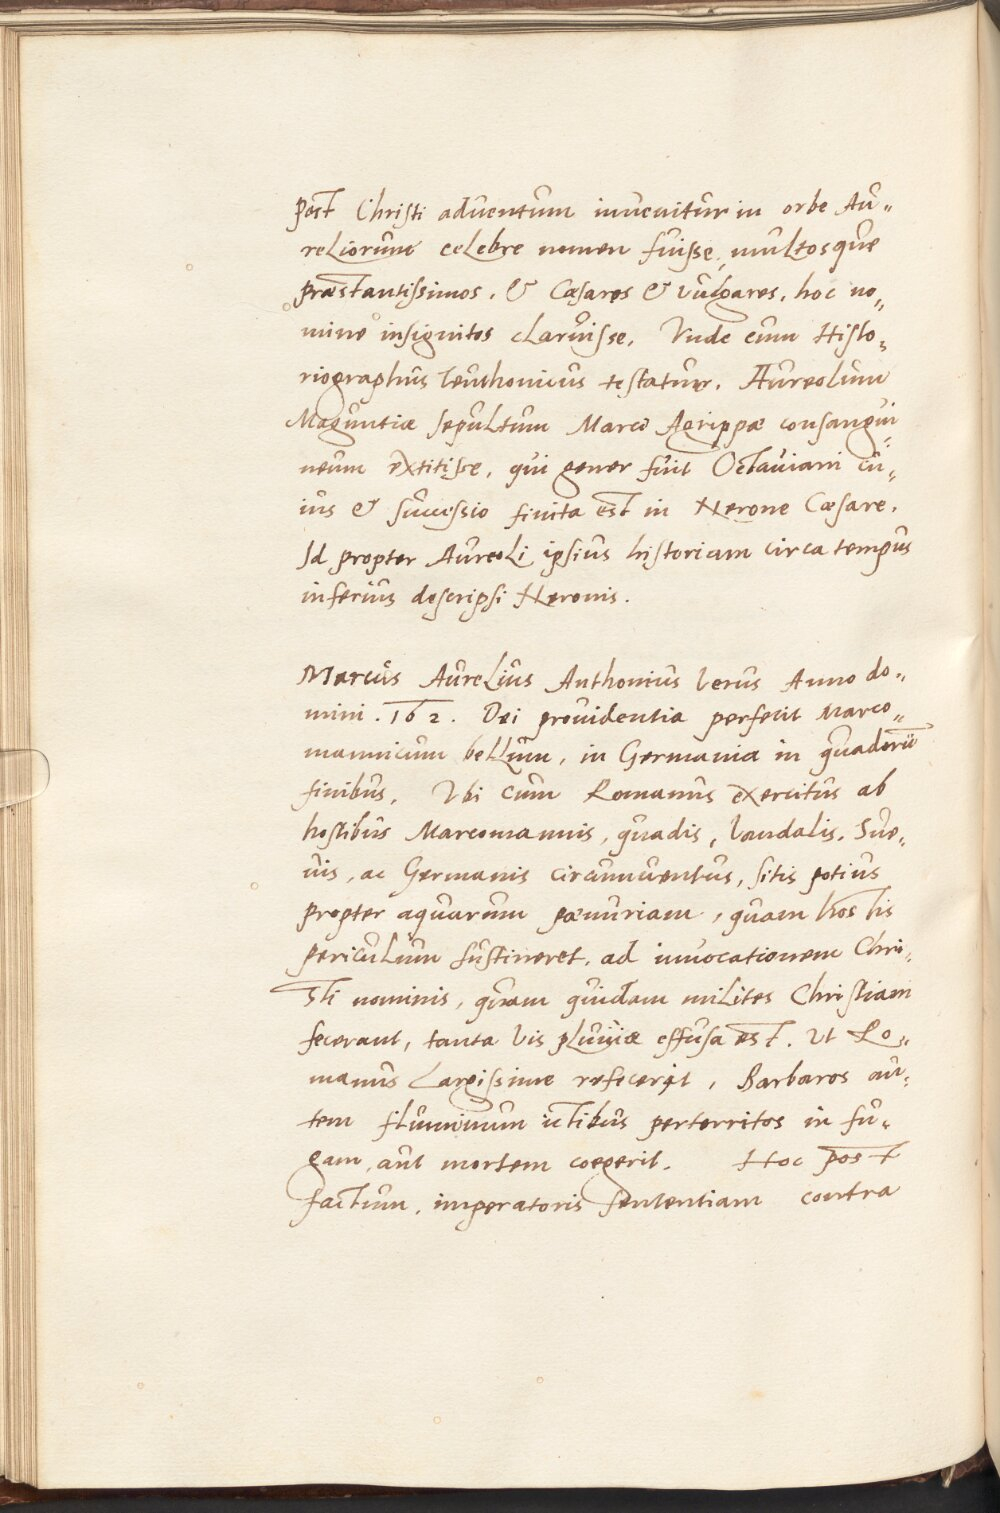 Post Christi adventum invenitur in orbe Au„
reliorum celebre nomen fuisse, multosque
præstantissimos, & Cæsares & vulgares, hoc no„
mine insignitos claruisse. Vnde enim Histo„
riographus Teuthonicus testatur. Aureolum
Maguntiæ sepultum Marco Agrippæ consangui„
neum extitisse, qui gener fuit Octaviani cu„
ius & successio finita est in Nerone Cæsare.
Id propter Aureoli ipsius historiam circa tempus
inferius descripsi Neronis.
Marcus Aurelius Anthonius Verus Anno do„
mini . 162. Dei providentia perfecit Marco„
mannicum bellum, in Germania in quadorū
finibus, Vbi cum Romanus exercitus ab
hostibus Marcomannis, quadis, Vandalis, Sue„
uis, ac Germanis circumventus, sitis potius
propter aquarum pænuriam, quam hostis
periculum sustineret, ad invocationem Chri„
sti nominis, quam quidam milites Christiani
fecerant, tanta vis pluviæ effusa est. Vt Ro„
manus largissime refecerit, Barbaros au„
tem fluminum ictibus perterritos in fu„
gam, aut mortem coegerit. Hoc post
factum, imperatoris sententiam contra